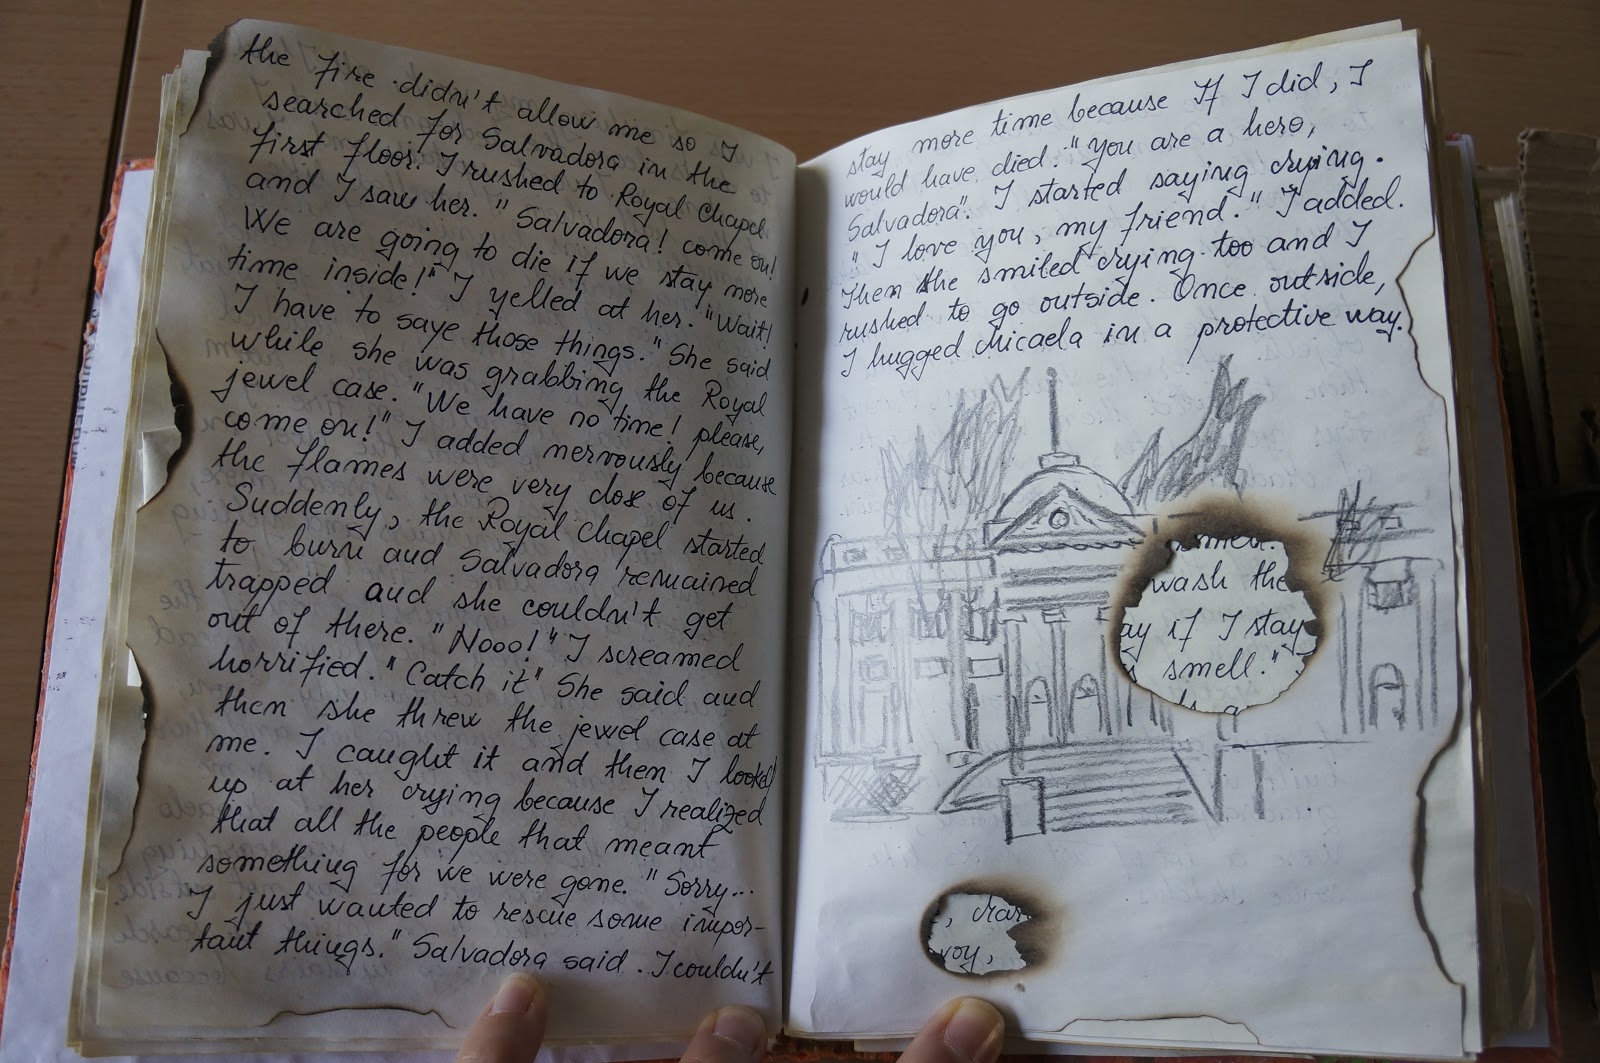 the fire didn't allow me so I
searched for Salvadora in the
first floor. I rushed to Royal Chapel
and I saw her. "Salvadora! come on!
We are going to die if we stay more
time inside!" I yelled at her. "Wait!
I have to saye those things." She said
while she was grabbing the Royal
jewel case. "We have no time! please,
come on!" I added nervously because
the flames were very close of us.
Suddenly, the Royal Chapel started
to burn and Salvadora remained
trapped and she couldn't get
out of there. "Nooo!" I screamed
horrified. "Catch it" She said and
then she threw the jewel case at
me. I caught it and then I looked
up at her crying because I realized
that all the people that meant
something for we were gone. "Sorry...
I just wanted to rescue some impor-
tant things." Salvadora said. I couldn't
stay more time because If I did, I
would have died. "You are a hero,
Salvadora". I started saying crying.
"I love you, my friend." I added.
Then she smiled crying too and I
rushed to go outside. Once outside,
I hugged Micaela in a protective way.
smell.
wash the
ay if I stay
smell."